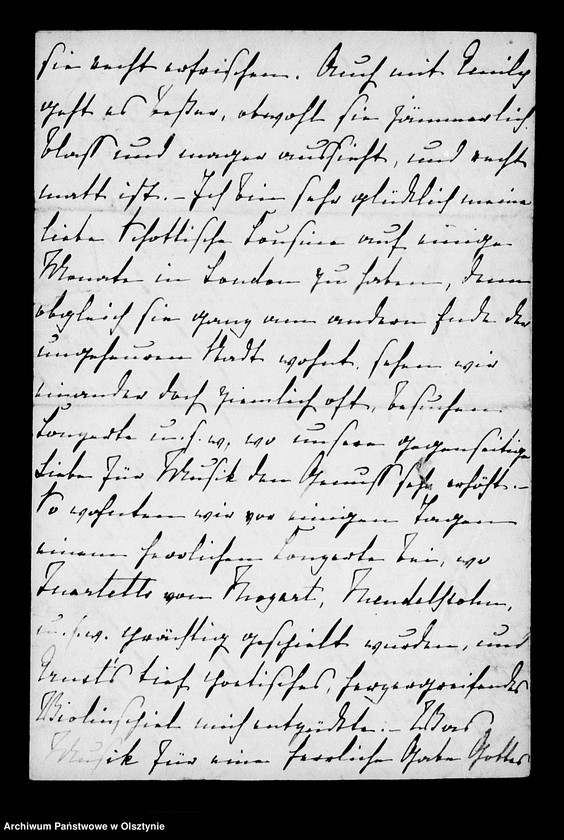 sie recht erfrischen. Auch mit Emily
geht es besser, obwohl sie jämmerlich
blass und mager aussieht, und recht
matt ist. – Ich bin sehr glücklich meine
liebe Schottische Cousine auf einige
Monate in London zu haben, denn
obgleich sie ganz am andern Ende der
ungeheuren Stadt wohnt, sehen wir
einander doch ziemlich oft, besuchen
Conzerte u.s.w, wo unsere gegenseitige
Liebe für Musik den Genuss sehr erhöht. –
So wohnten wir vor einigen Tagen
einem herrlichen Conzerte bei, wo
Quartetts von Mozart, Mendelssohn,
u.s.w. prächtig gespielt wurden, und
Ernst's tief poetisches, herzergreifendes
Violinspiel mich entzückte. – Was
Musik für eine herrliche Gabe Gottes
Archiwum Państwowe w Olsztynie